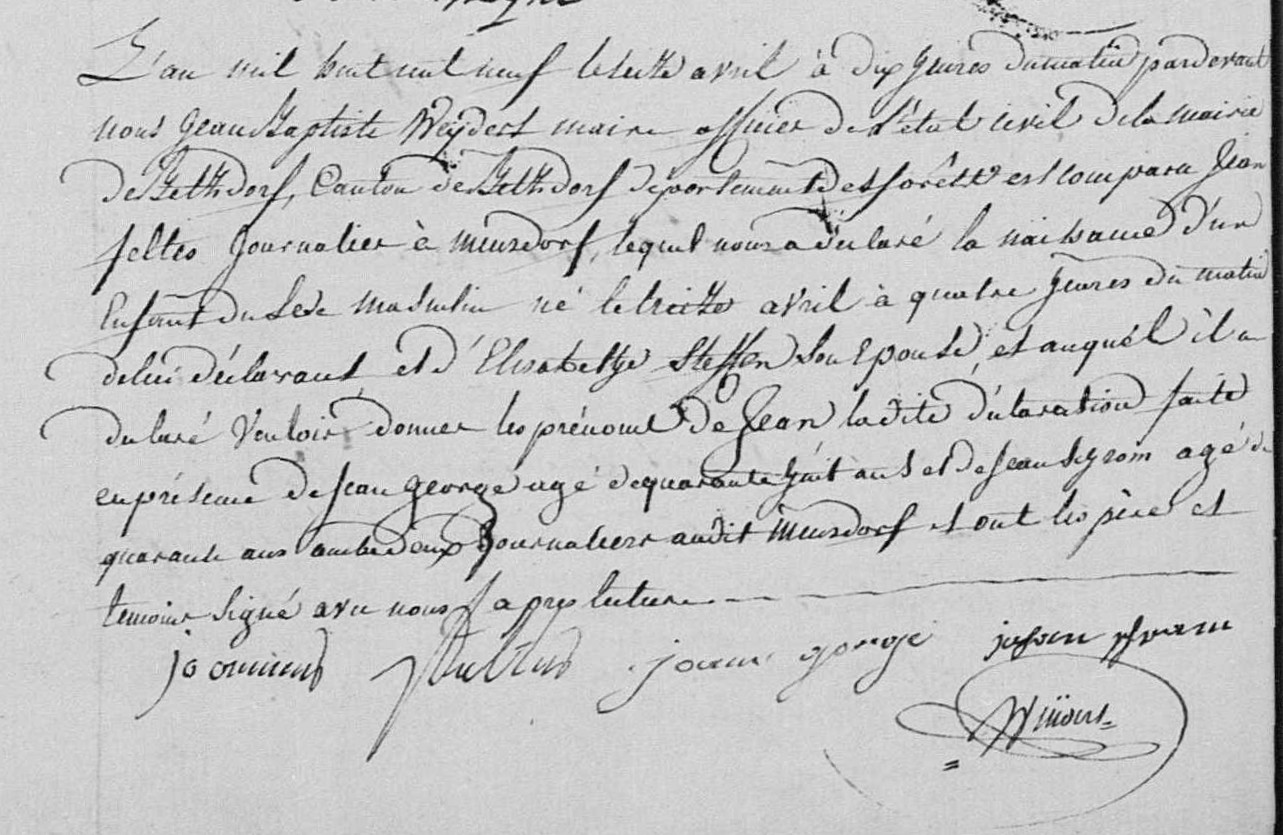 L'an mil huit cent neuf le seize avril à dix heures du matin pardevant
nous Jean Baptiste Weydert maire officier de l'état civil de la mairie
de Bettdorf, Canton de Bettdorf departement des forêts est comparu Jean
feltes Journalier à Meesdorf, lequel nous a déclaré la naissance d'un
Enfant du sexe masculin né le treize avril à quatre heures du matin
de lui déclarant et d'Elisabethe Steffen son Epouse, et auquel il a
declaré Vouloir donner les prénoms de Jean la dite déclaration faite
en présence de Jean george agé de quarante huit ans et de Jean agé de
quarante ans ambedeux Journaliers audit Meesdorf et ont les père et
temoins signé avec nous apres lecture
joannes joann george johan